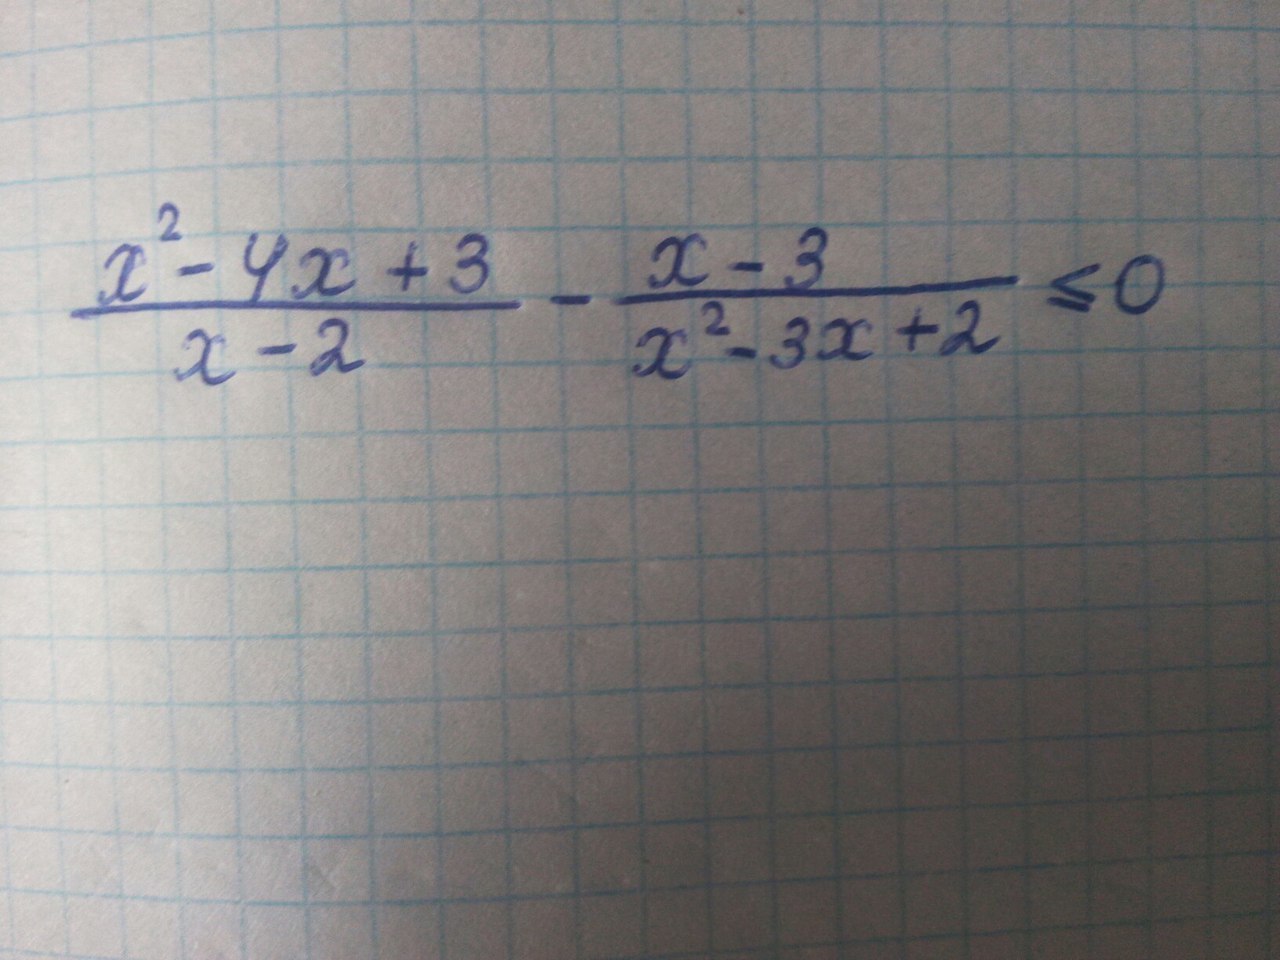 (x² - 4x + 3)/(x - 2) - (x - 3)/(x² - 3x + 2) ≤ 0